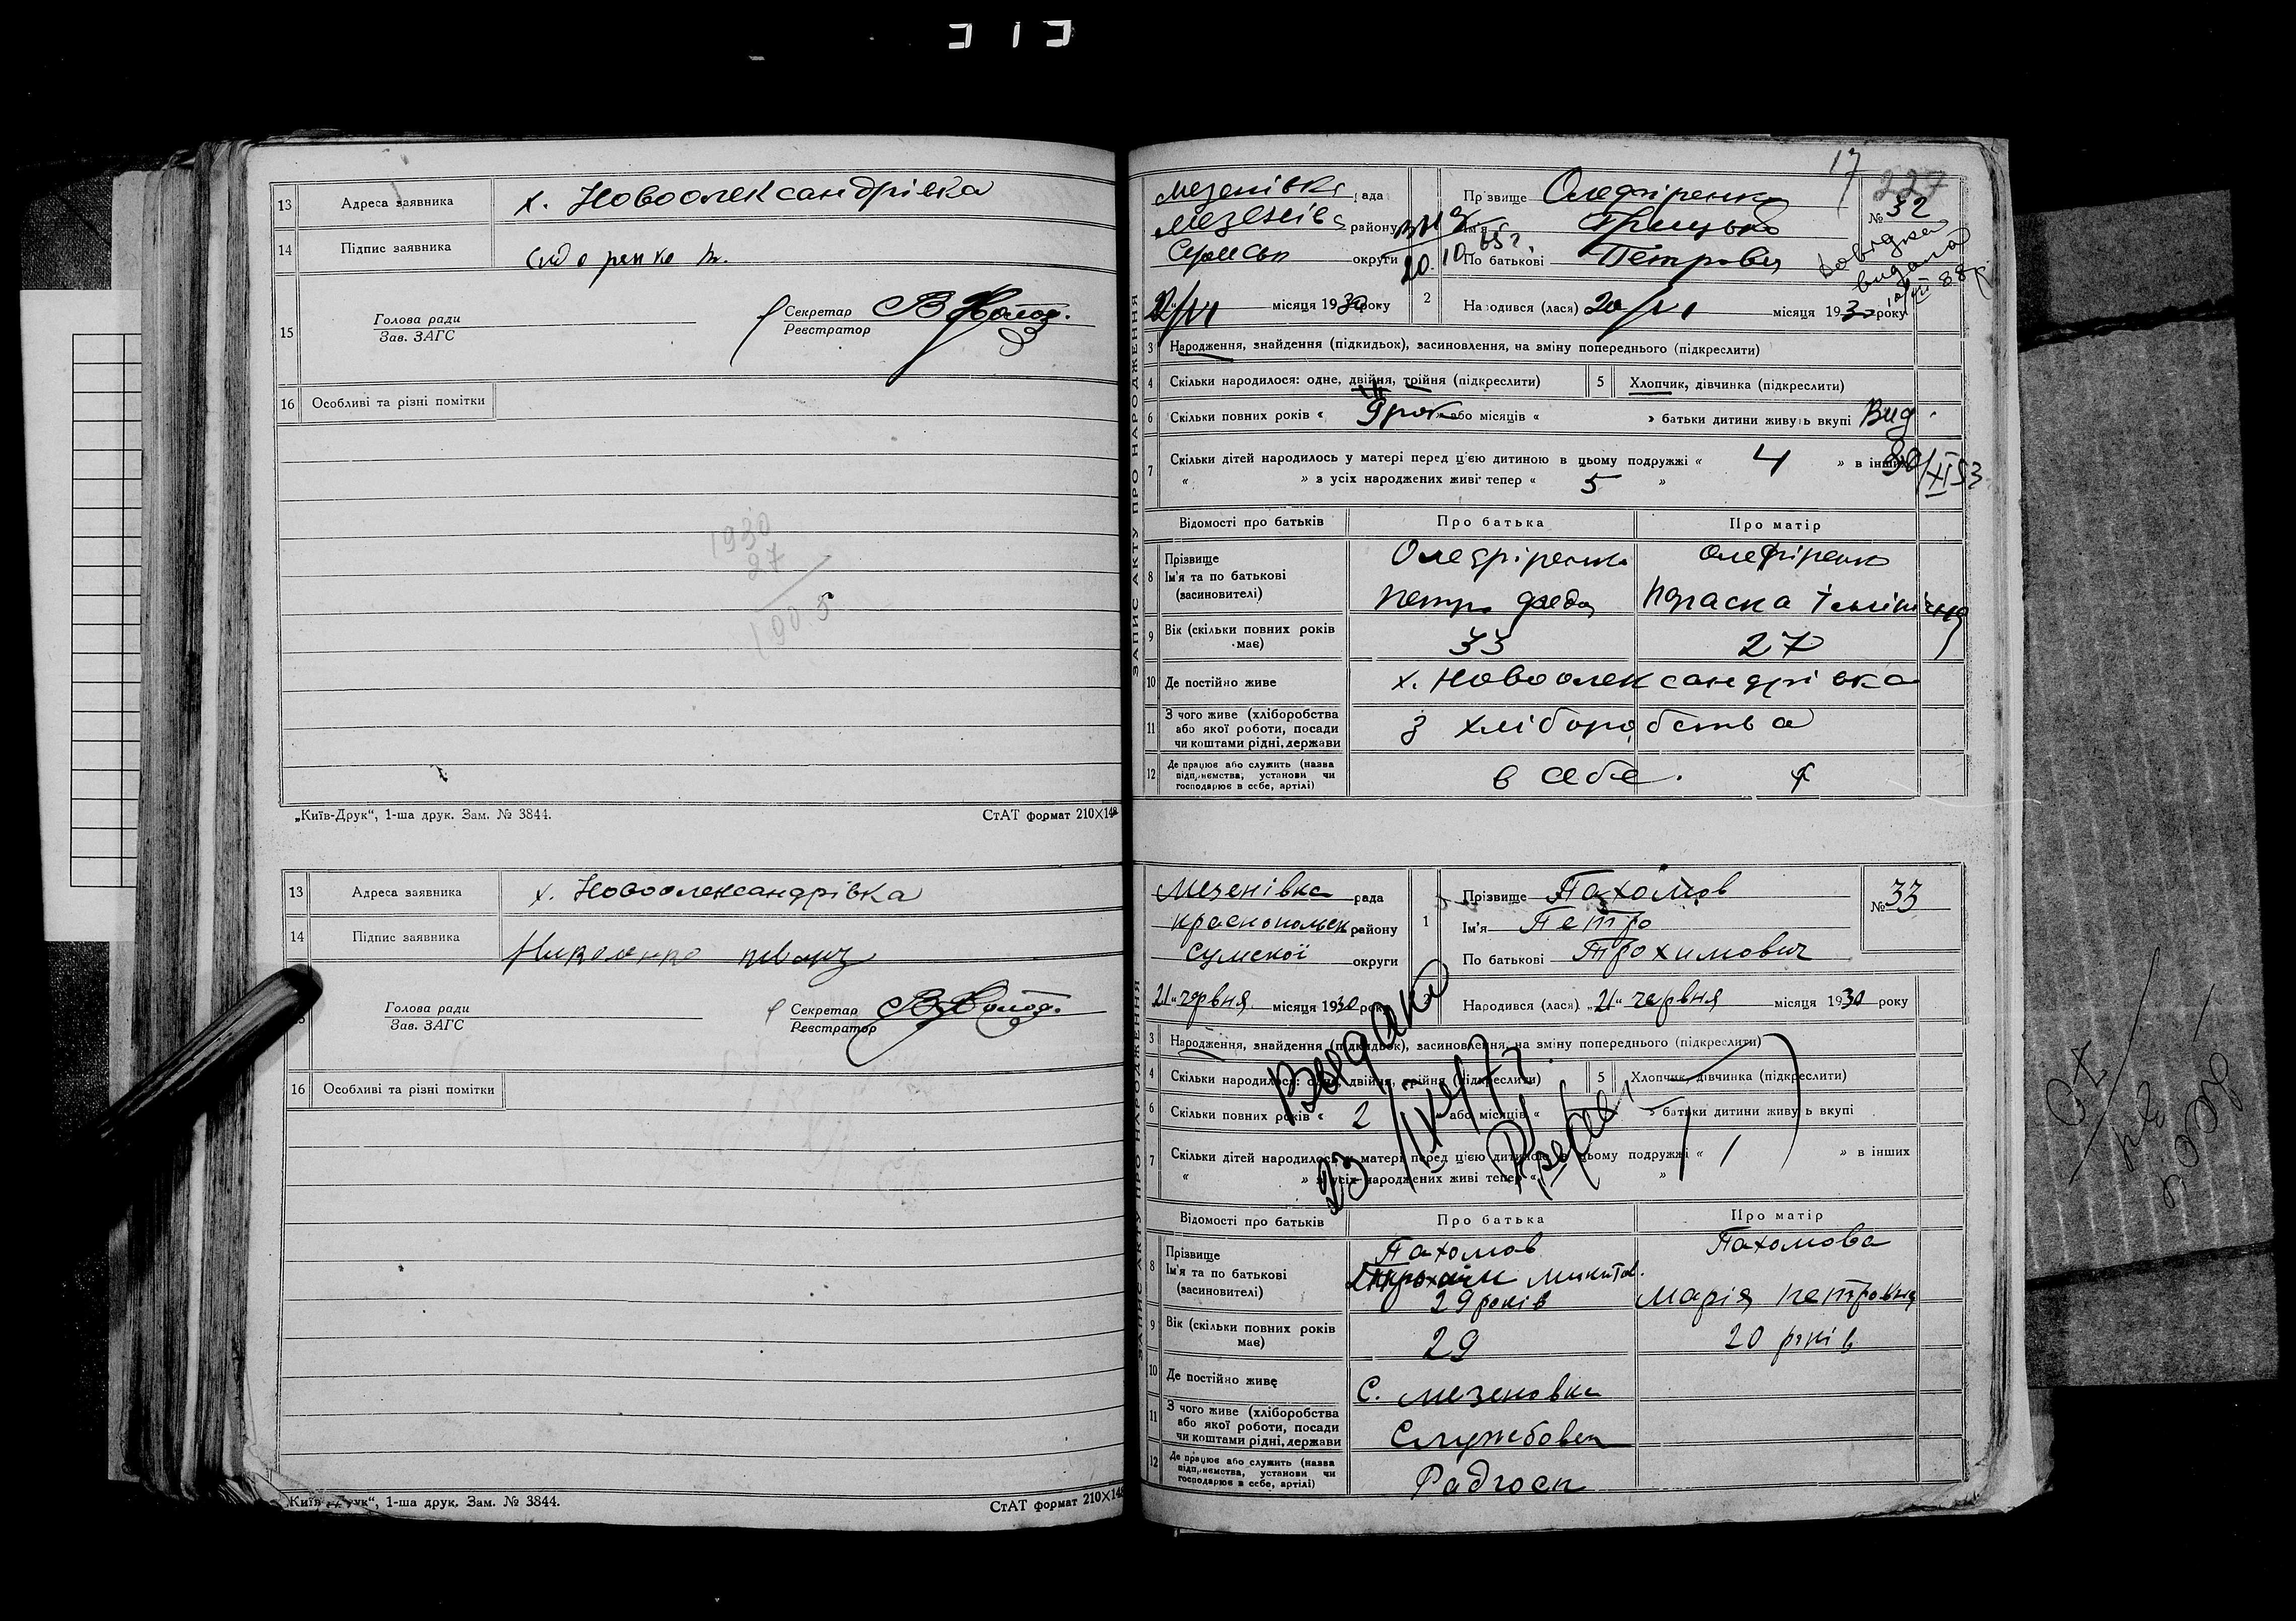 313
13 Адреса заявника х. Новоолександрівка
14 Підпис заявника
15 Голова ради
Зав. ЗАГС
Секретар
Реєстратор
16 Особливі та різні помітки
1930
27
1905
„Київ-Друк“, 1-ша друк. Зам. № 3844. СтАТ формат 210×148
13 Адреса заявника х. Новоолександрівка
14 Підпис заявника
Голова ради
Зав. ЗАГС
Секретар
Реєстратор
16 Особливі та різні помітки
„Київ-Друк“, 1-ша друк. Зам. № 3844. СтАТ формат 210×148
17
227
ЗАПИС АКТУ ПРО НАРОДЖЕННЯ
Мезенівка рада
району
округи
місяця 1930 року
Прізвище Олефіренко
Ім'я Грицько
По батькові Петрович
№ 32
довідка
видана
2 Народився (лася) 20/VI місяця 1930 року
3 Народження, знайдення (підкидьок), засиновлення, на зміну попереднього (підкреслити)
4 Скільки народилося: одне, двійня, трійня (підкреслити) 5 Хлопчик, дівчинка (підкреслити)
6 Скільки повних років « 9 рок » або місяців « » батьки дитини живуть вкупі Вид.
7 Скільки дітей народилось у матері перед цією дитиною в цьому подружжі « 4 » в інших
« » з усіх народжених живі тепер « 5 »
30/XI 53
Відомості про батьків Про батька Про матір
8 Прізвище
Ім'я та по батькові
(засиновителі)
Олефіренко
Петро Федо
Олефіренко
Параска
9 Вік (скільки повних років має) 33 27
10 Де постійно живе х. Новоолександрівка
11 З чого живе (хліборобства
або якої роботи, посади
чи коштами рідні, держави
з хліборобства
12 Де працює або служить (назва
підприємства, установи чи
господарює в себе, артілі)
в себе.
ЗАПИС АКТУ ПРО НАРОДЖЕННЯ
Мезенівка рада
Краснопольськ району
Сумської округи
„21“ червня місяця 1930 року
1 Прізвище Пахомов
Ім'я Петро
По батькові Трохимович
№ 33
Народився (лася) „21“ червня місяця 1930 року
3 Народження, знайдення (підкидьок), засиновлення, на зміну попереднього (підкреслити)
4 Скільки народилося: одне, двійня, трійня (підкреслити) 5 Хлопчик, дівчинка (підкреслити)
6 Скільки повних років « 2 » або місяців « » батьки дитини живуть вкупі
7 Скільки дітей народилось у матері перед цією дитиною в цьому подружжі « 1 » в інших
« » з усіх народжених живі тепер « »
Відомості про батьків Про батька Про матір
8 Прізвище
Ім'я та по батькові
(засиновителі)
Пахомов
Трохим Микитов.
29 років
Пахомова
Марія Петровна
9 Вік (скільки повних років має) 29 20 років
10 Де постійно живе С. Мезеновка
11 З чого живе (хліборобства
або якої роботи, посади
чи коштами рідні, держави
Службовец
12 Де працює або служить (назва
підприємства, установи чи
господарює в себе, артілі)
Радгосп